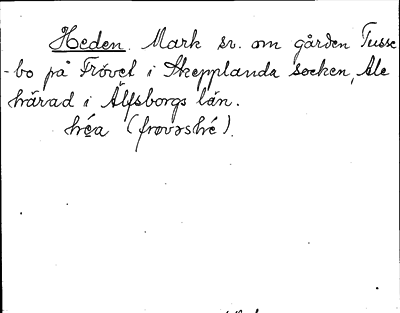 Heden. Mark sv. om gården Tusse
-bo på Frövet i Skepplanda socken, Ale
härad i Älfsborgs län.
héa (frovəshé).